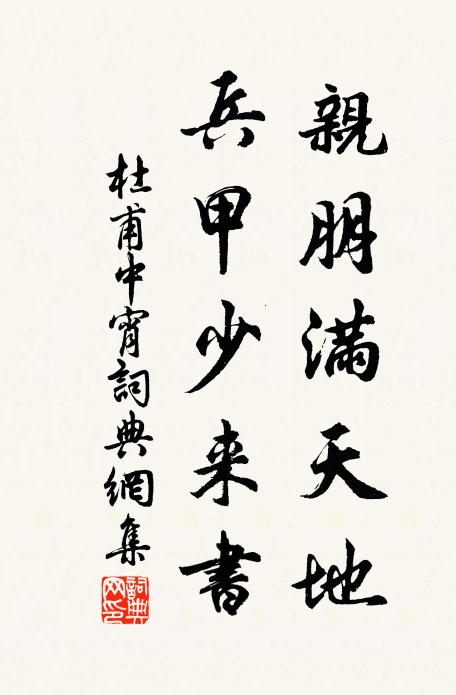 親朋滿天地
兵甲少来書
杜甫中宵詞典網集
詞典網印